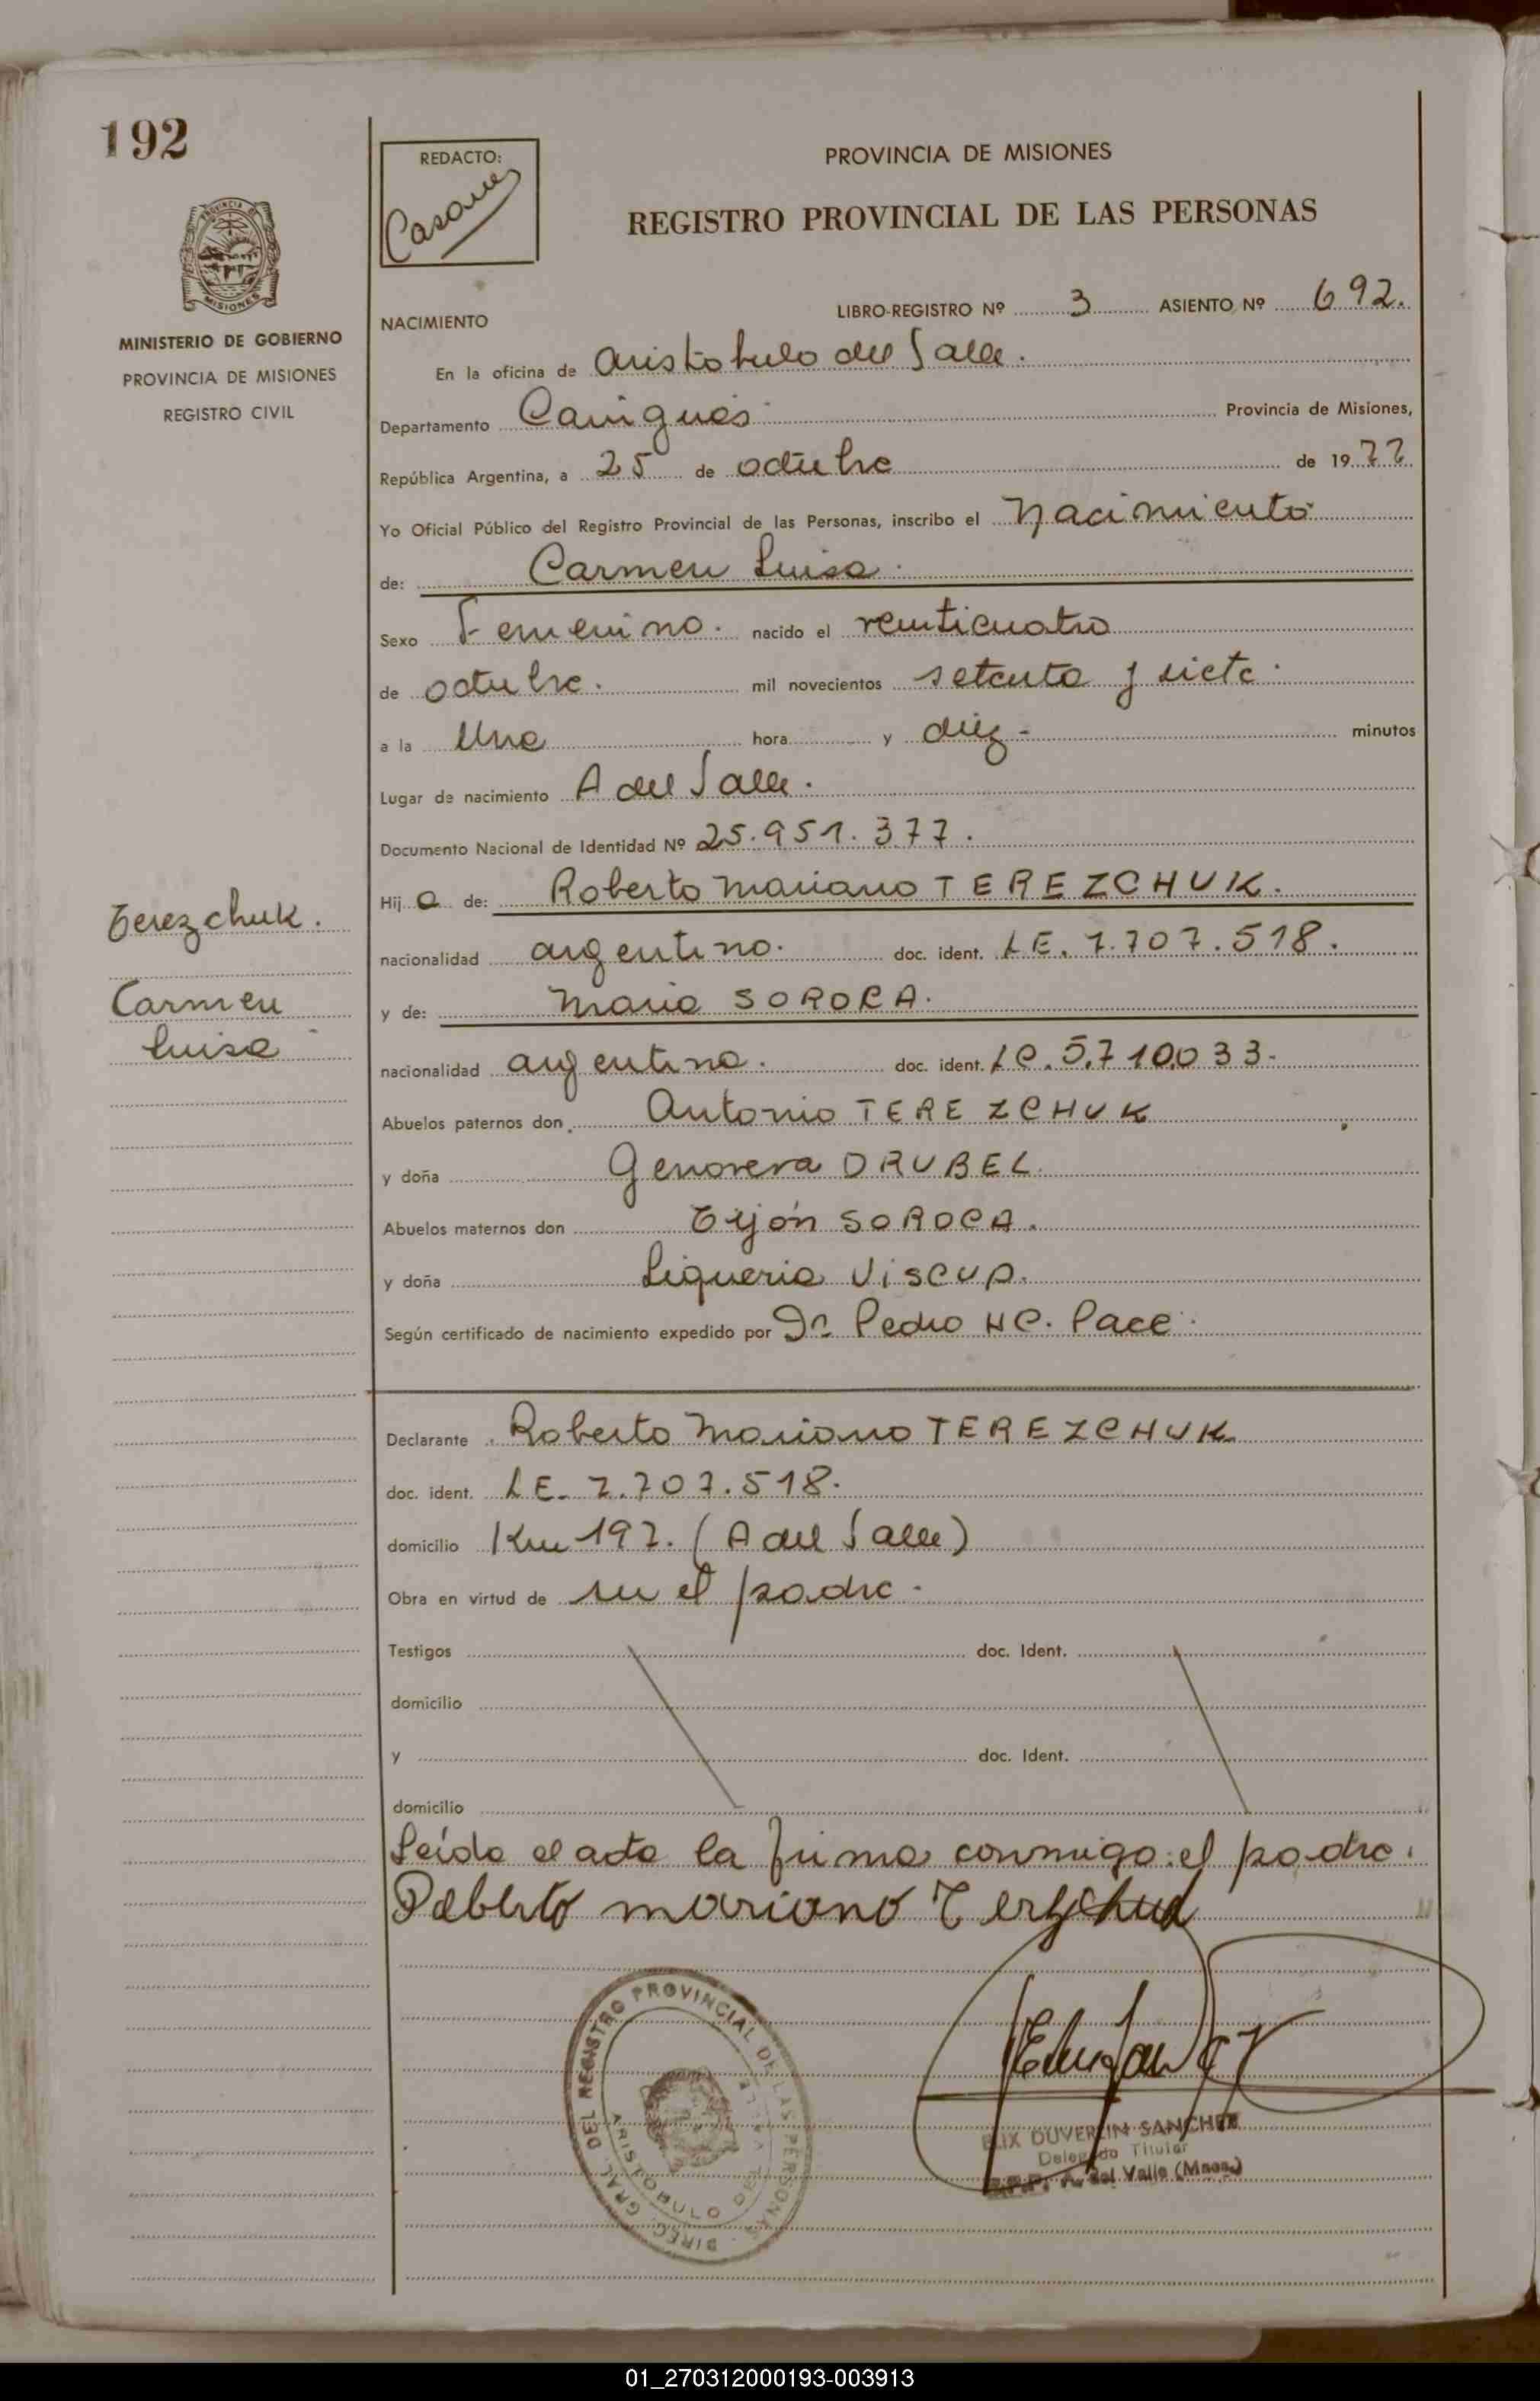 192
PROVINCIA DE
MISIONES
MINISTERIO DE GOBIERNO
PROVINCIA DE MISIONES
REGISTRO CIVIL
REDACTO:
PROVINCIA DE MISIONES
REGISTRO PROVINCIAL DE LAS PERSONAS
NACIMIENTO LIBRO-REGISTRO Nº 3 ASIENTO Nº 692.
En la oficina de Aristobulo del Valle.
Departamento Cainguás Provincia de Misiones,
República Argentina, a 25 de octubre de 1977
Yo Oficial Público del Registro Provincial de las Personas, inscribo el Nacimiento
de: Carmen Luisa.
Sexo Femenino. nacido el veinticuatro
de octubre. mil novecientos setenta y siete.
a la Una hora y diez - minutos
Lugar de nacimiento A del Valle.
Documento Nacional de Identidad Nº 25.951.377.
Terezchuk.
Carmen
Luisa
Hij a de: Roberto Mariano TEREZCHUK.
nacionalidad argentino. doc. ident. LE. 7.707.518.
y de: Maria SOROCA.
nacionalidad argentina. doc. ident. LC. 5.710.033.
Abuelos paternos don Antonio TEREZCHUK
y doña Genoveva DRUBEL.
Abuelos maternos don SOROCA.
y doña
Según certificado de nacimiento expedido por Dr. Pedro HC. Pace.
Declarante Roberto Mariano TEREZCHUK.
doc. ident. LE. 7.707.518.
domicilio Km 197. (A del Valle)
Obra en virtud de ser el padre.
Testigos doc. Ident.
domicilio
y doc. Ident.
domicilio
Leída el acta la firma conmigo: el padre.
Roberto mariano
DIREC. GRAL. DEL REGISTRO PROVINCIAL DE LAS PERSONAS
ARISTOBULO DEL VALLE
DUVERLIN SANCHEZ
Delegado Titular
R.P.P. A. del Valle (Mnes.)
01_270312000193-003913